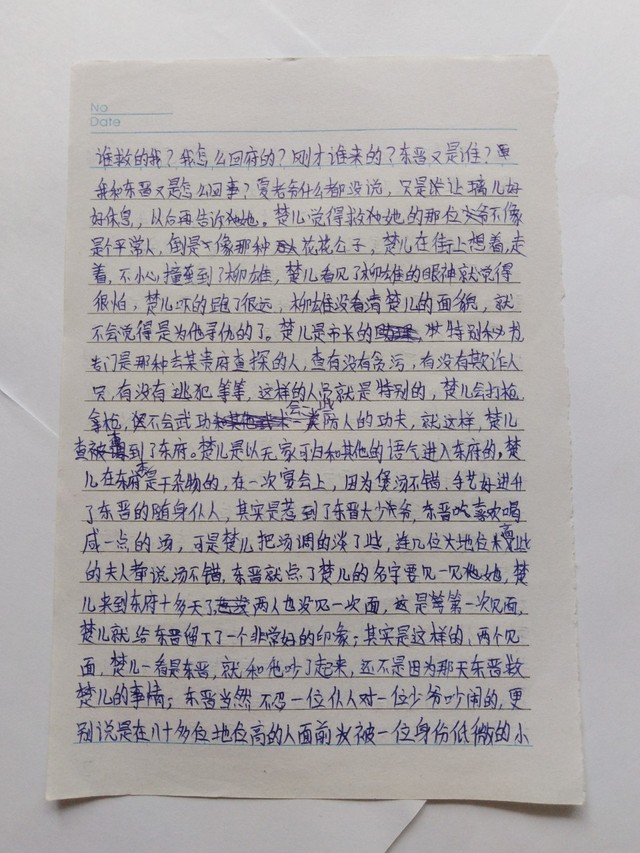 No
Date
谁救的我？我怎么回府的？刚才谁来的？东晋又是谁？
我和东晋又是怎么回事？夏老爷什么都没说，只是让璃儿好
好休息，以后再告诉她。楚儿觉得救她的那位少爷不像
是个平常人，倒是不像那种花花公子，楚儿在街上想着，走
着，不小心撞到了柳雄，楚儿看见了柳雄的眼神就觉得
很怕，楚儿吓的跑了很远，柳雄没看清楚儿的面貌，就
不会觉得是为他寻仇的了。楚儿是市长的特别秘书
专门是那种去某贵府查探的人，查有没有贪污，有没有欺诈人
民，有没有逃犯等等，这样的人员就是特别的，楚儿会打枪
拿枪，但不会武功会一些防人的功夫，就这样，楚儿
查到了东府。楚儿是以无家可归和其他的语气进入东府的，楚
儿在东府是干杂物的，在一次宴会上，因为煲汤不错，手艺好进升
了东晋的随身仆人，其实是惹到了东晋大少爷，东晋喜欢喝
咸一点的汤，可是楚儿把汤调的淡了些，连几位地位高些
的夫人都说汤不错，东晋就点了楚儿的名字要见一见她，楚
儿来到东府十多天了两人也没见一次面，这是第一次见面，
楚儿就给东晋留下了一个非常好的印象；其实是这样的，两个见
面，楚儿一看是东晋，就和他吵了起来，还不是因为那天东晋救
楚儿的事情；东晋当然不忍一位仆人对一位少爷吵闹的，更
别说是在八十多位地位高的人面前被一位身份低微的小